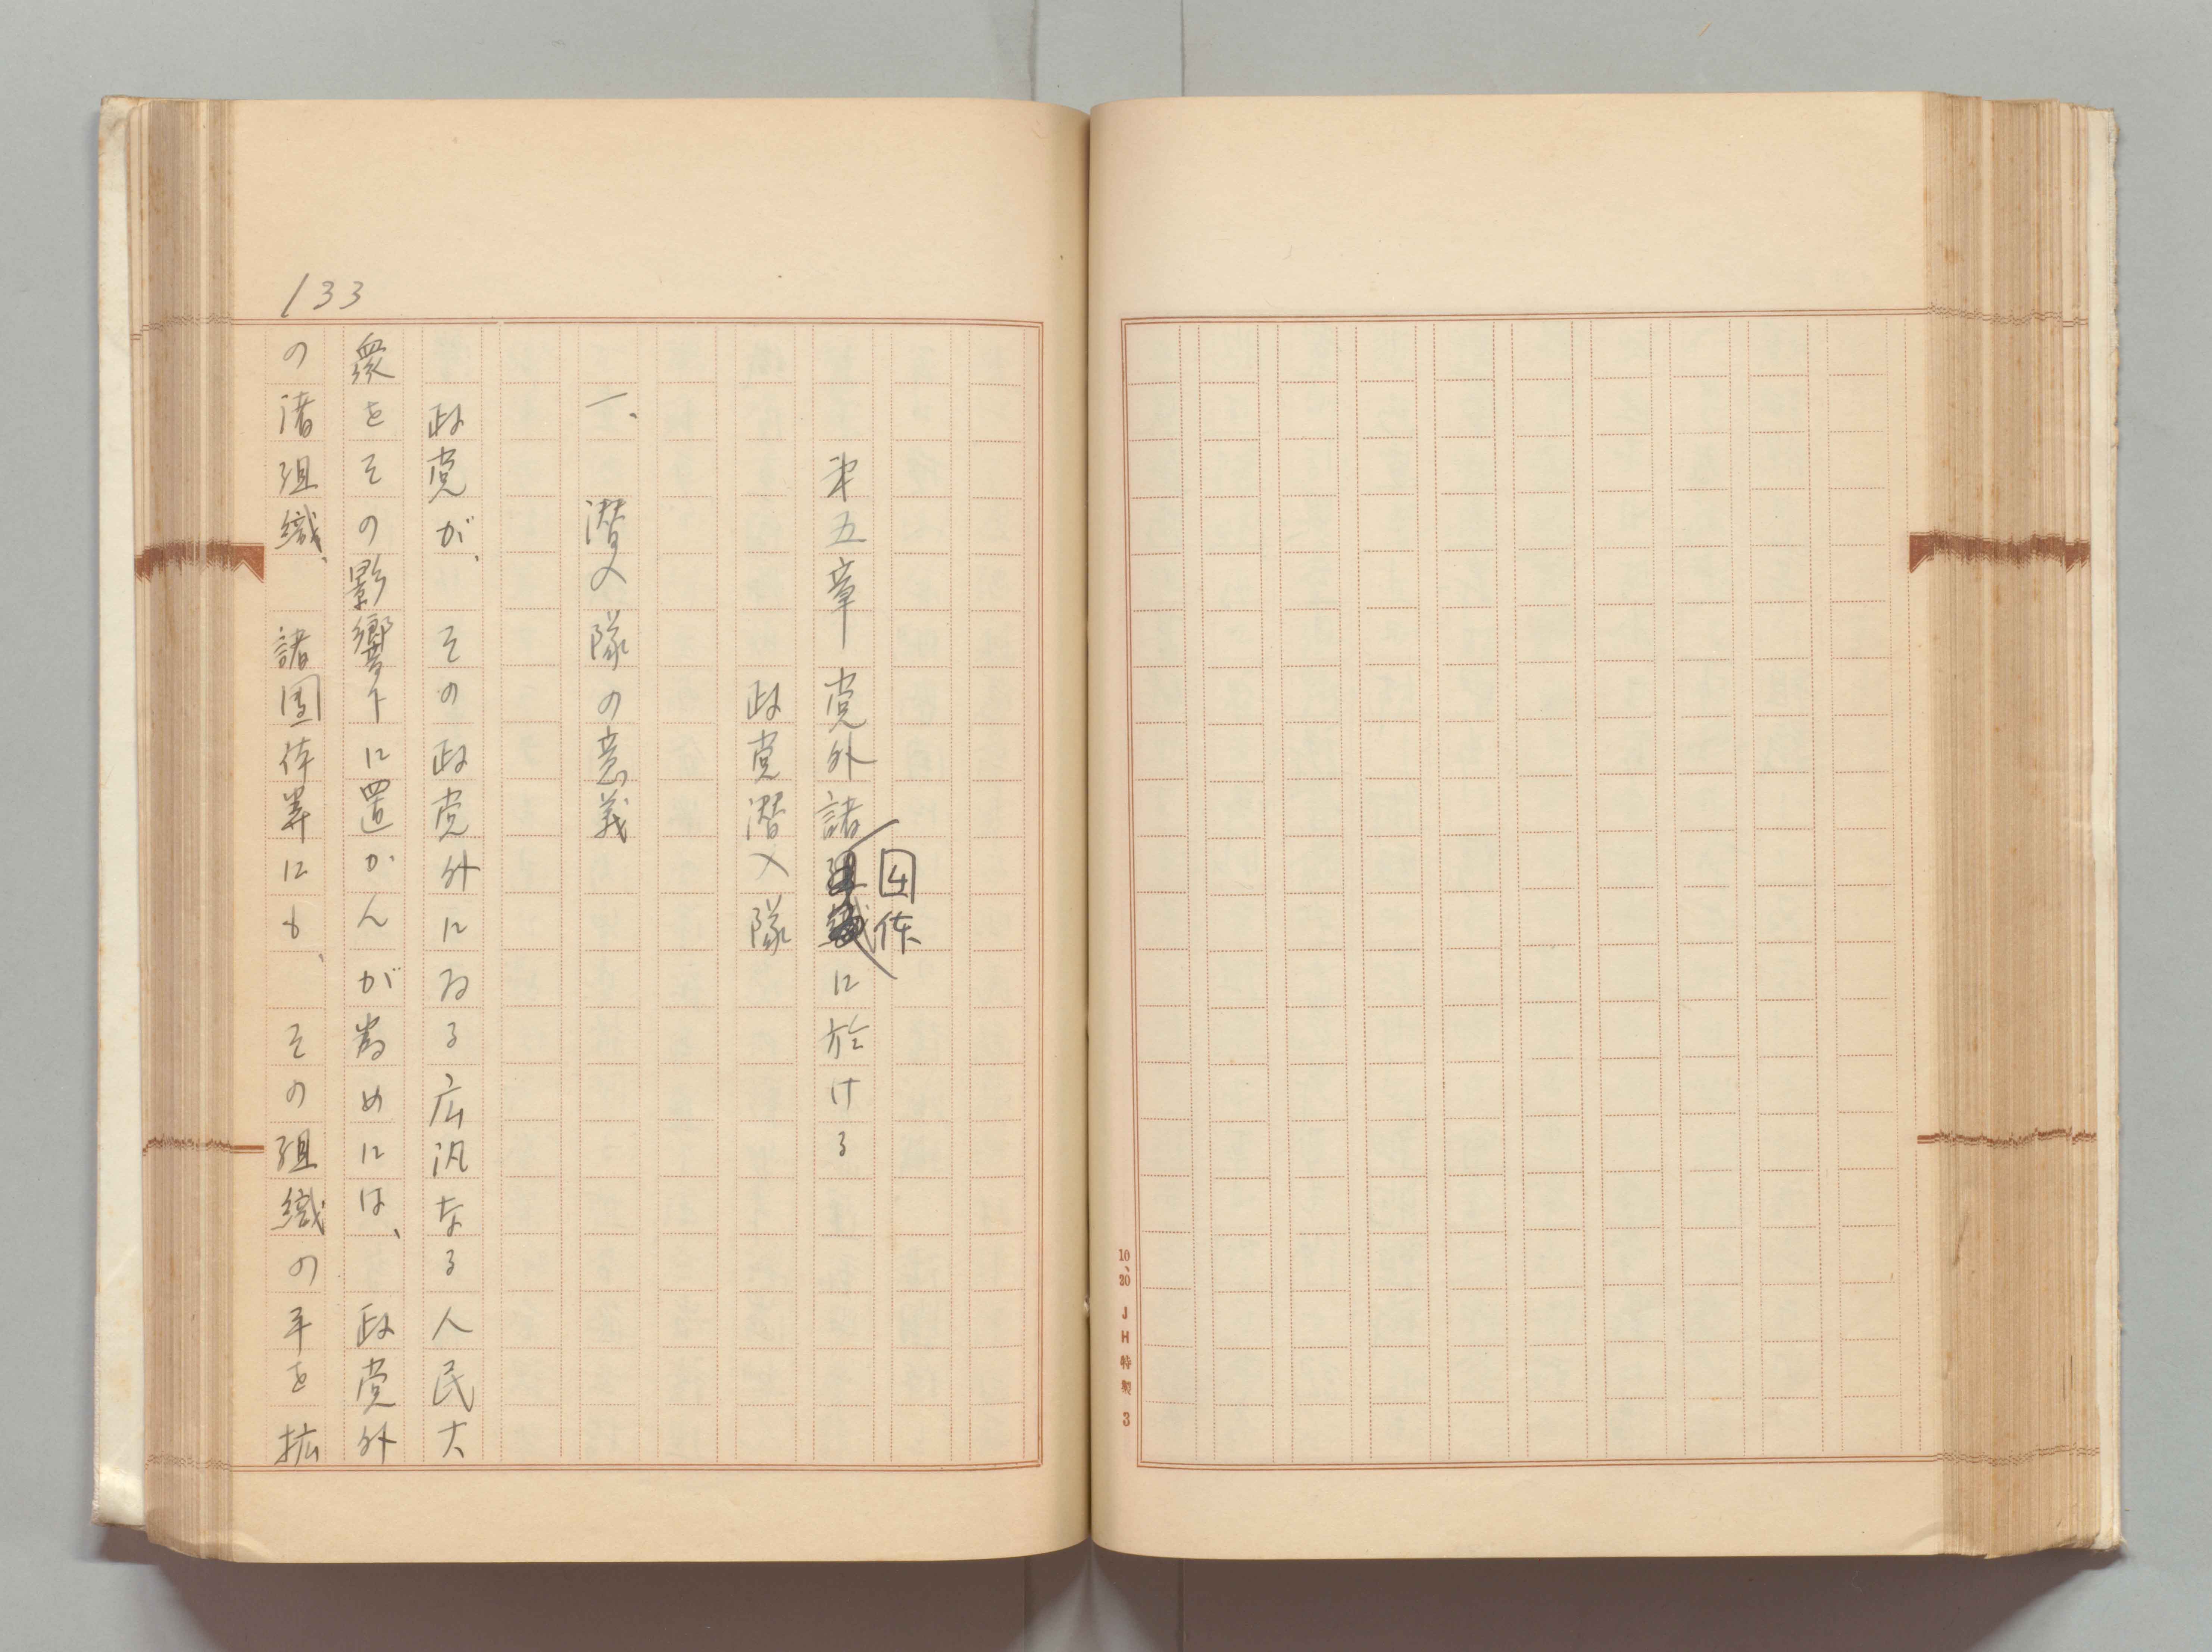 10、20 JH特製 3
133
第五章 党外諸団体に於ける
政党潜入隊
一、 潜入隊の意義
政党が、その政党外にゐる広汎なる人民大
衆をその影響下に置かんが為めには、政党外
の諸組織、諸団体等にも、その組織の手を拡